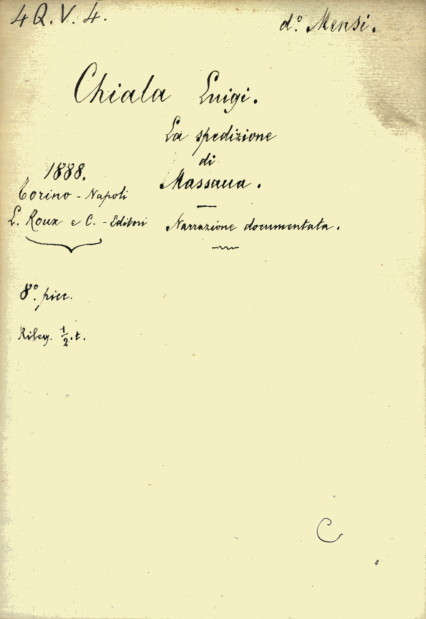 4Q.V.4.
d.º Mensi.
Chiala Luigi.
La spedizione
di
Massaua.
Narrazione documentata.
1888.
Torino - Napoli
L. Roux e C. - Editori
8º. picc.
Rileg. ½.t.
C